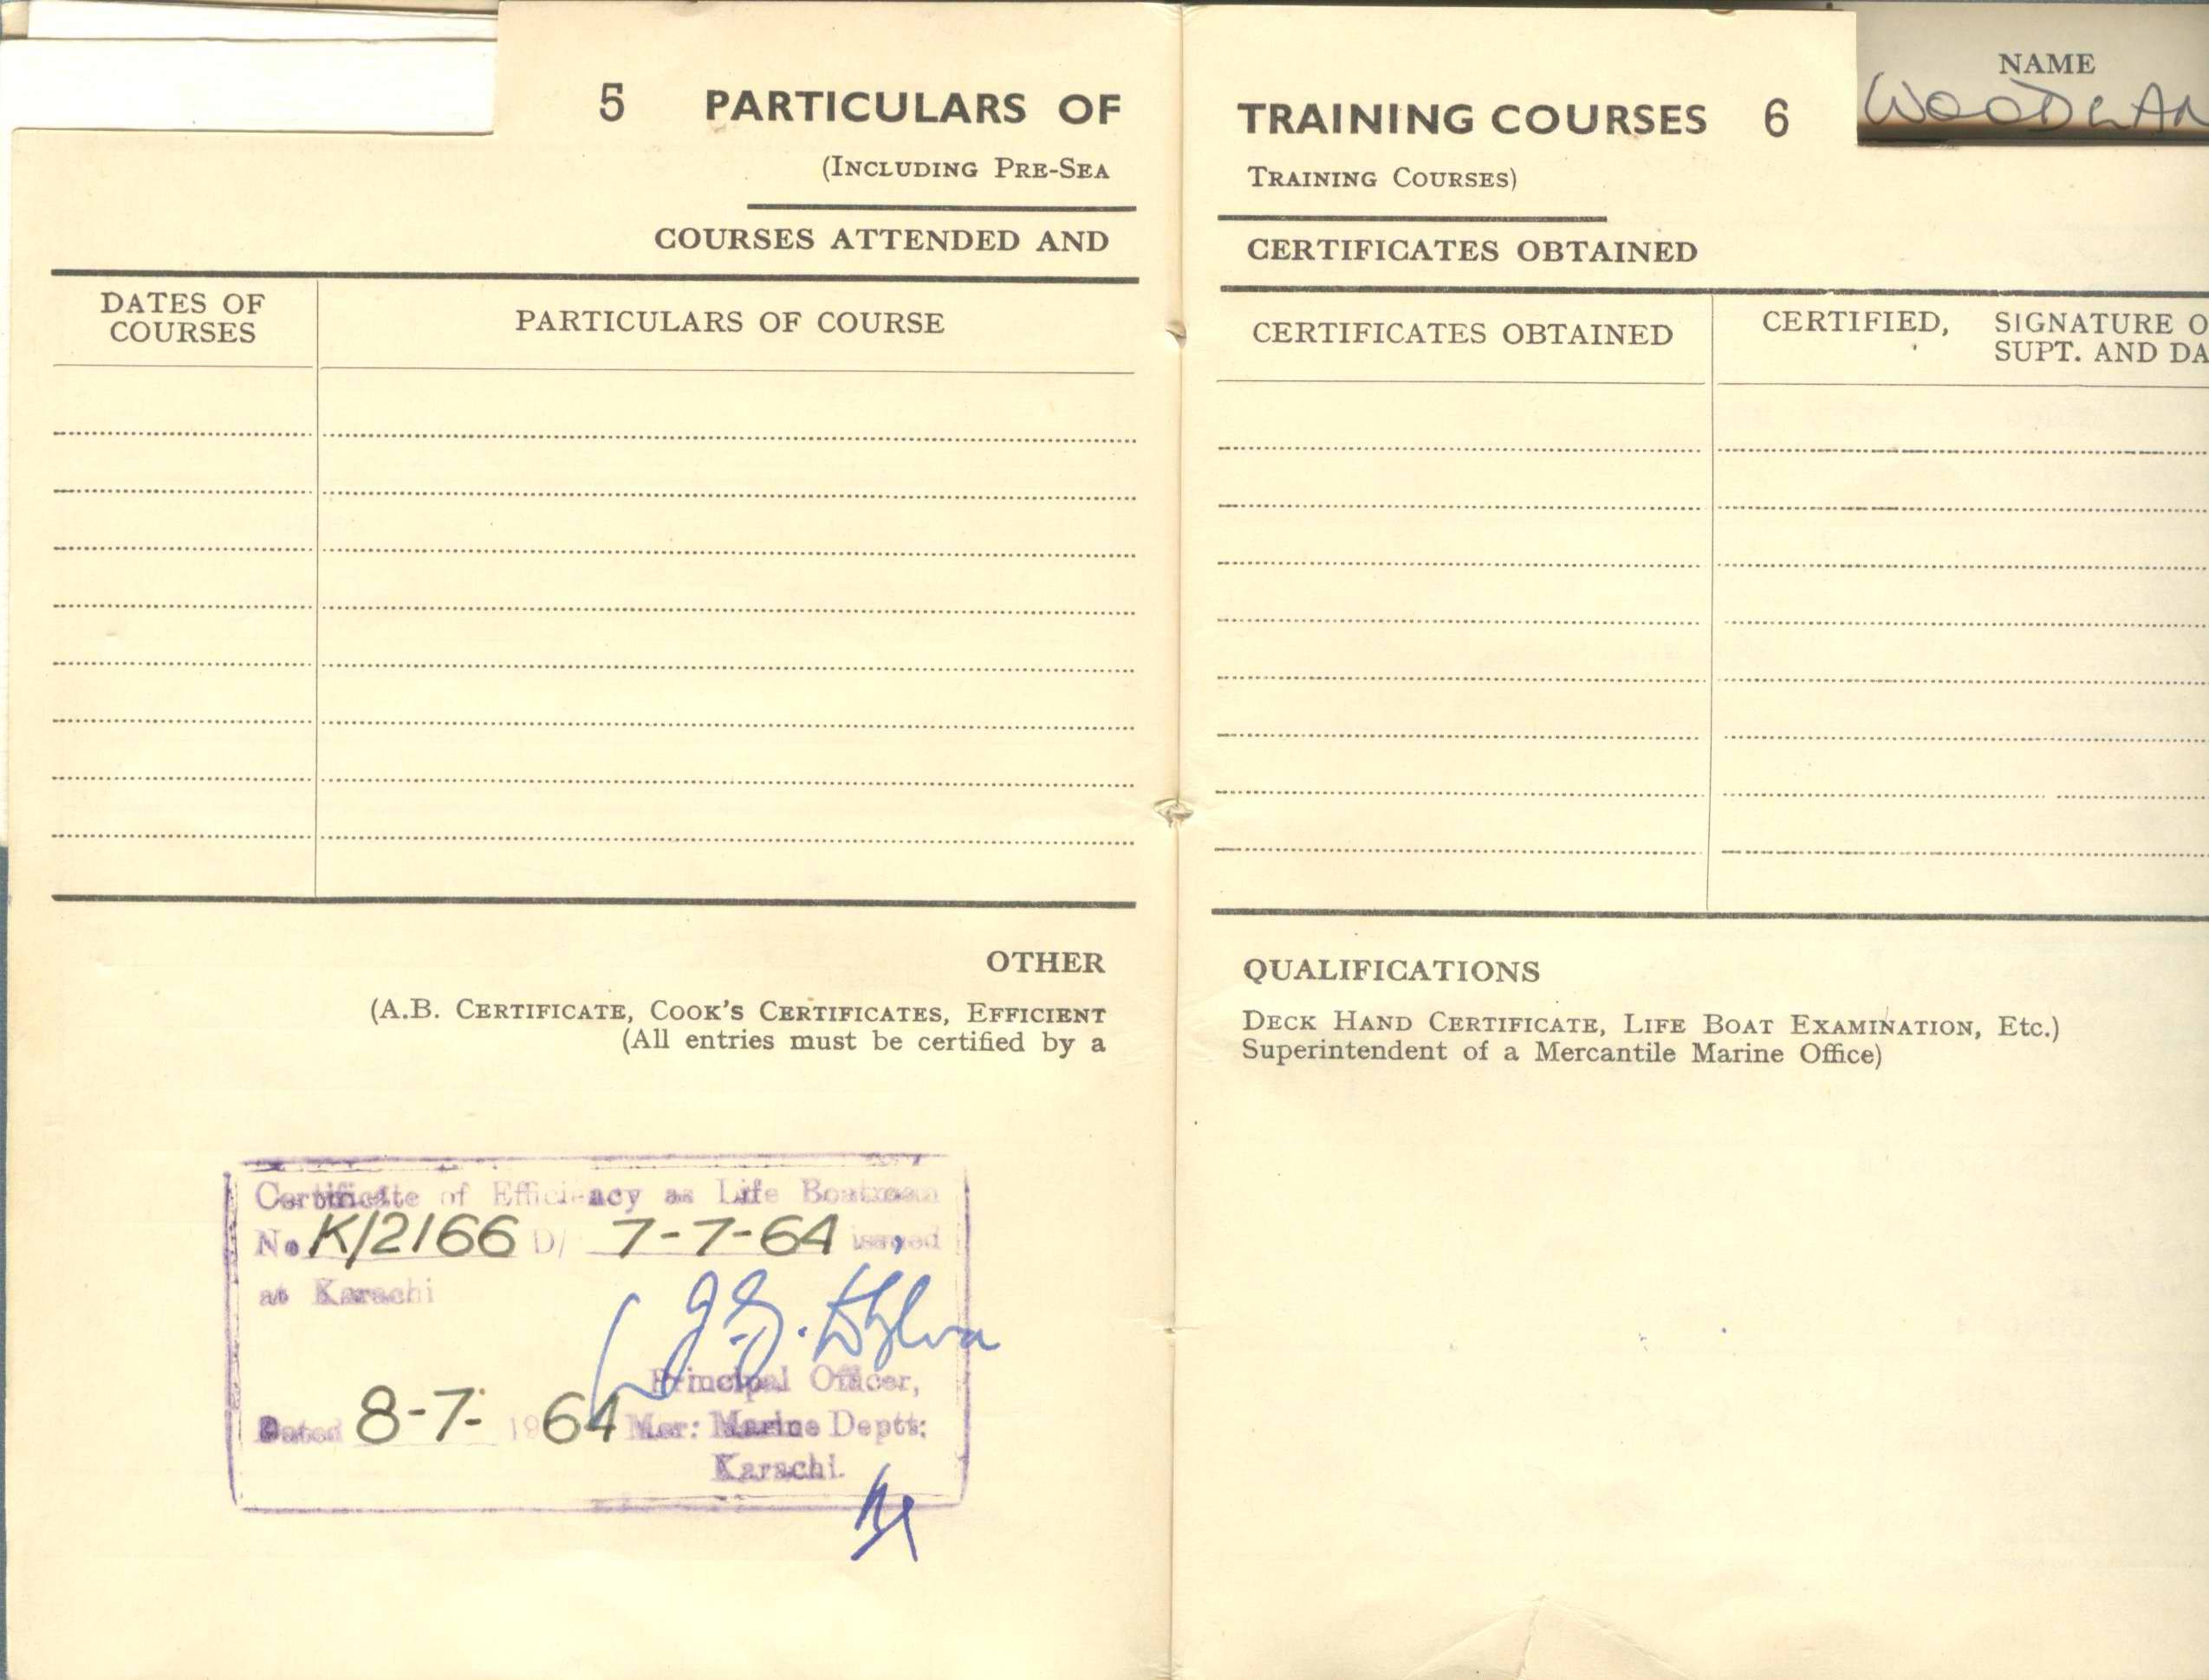 5 PARTICULARS OF
(INCLUDING PRE-SEA
COURSES ATTENDED AND
DATES OF
COURSES
PARTICULARS OF COURSE
OTHER
(A.B. CERTIFICATE, COOK'S CERTIFICATES, EFFICIENT
(All entries must be certified by a
Certificate of Efficiency as Life Boatman
No K/2166 D/ 7-7-64 issued
at Karachi
Principal Officer,
Dated 8-7- 1964 Mer: Marine Deptt:
Karachi.
TRAINING COURSES 6
TRAINING COURSES)
CERTIFICATES OBTAINED
CERTIFICATES OBTAINED
CERTIFIED, SIGNATURE O
SUPT. AND DA
QUALIFICATIONS
DECK HAND CERTIFICATE, LIFE BOAT EXAMINATION, Etc.)
Superintendent of a Mercantile Marine Office)
NAME
WOODLAN